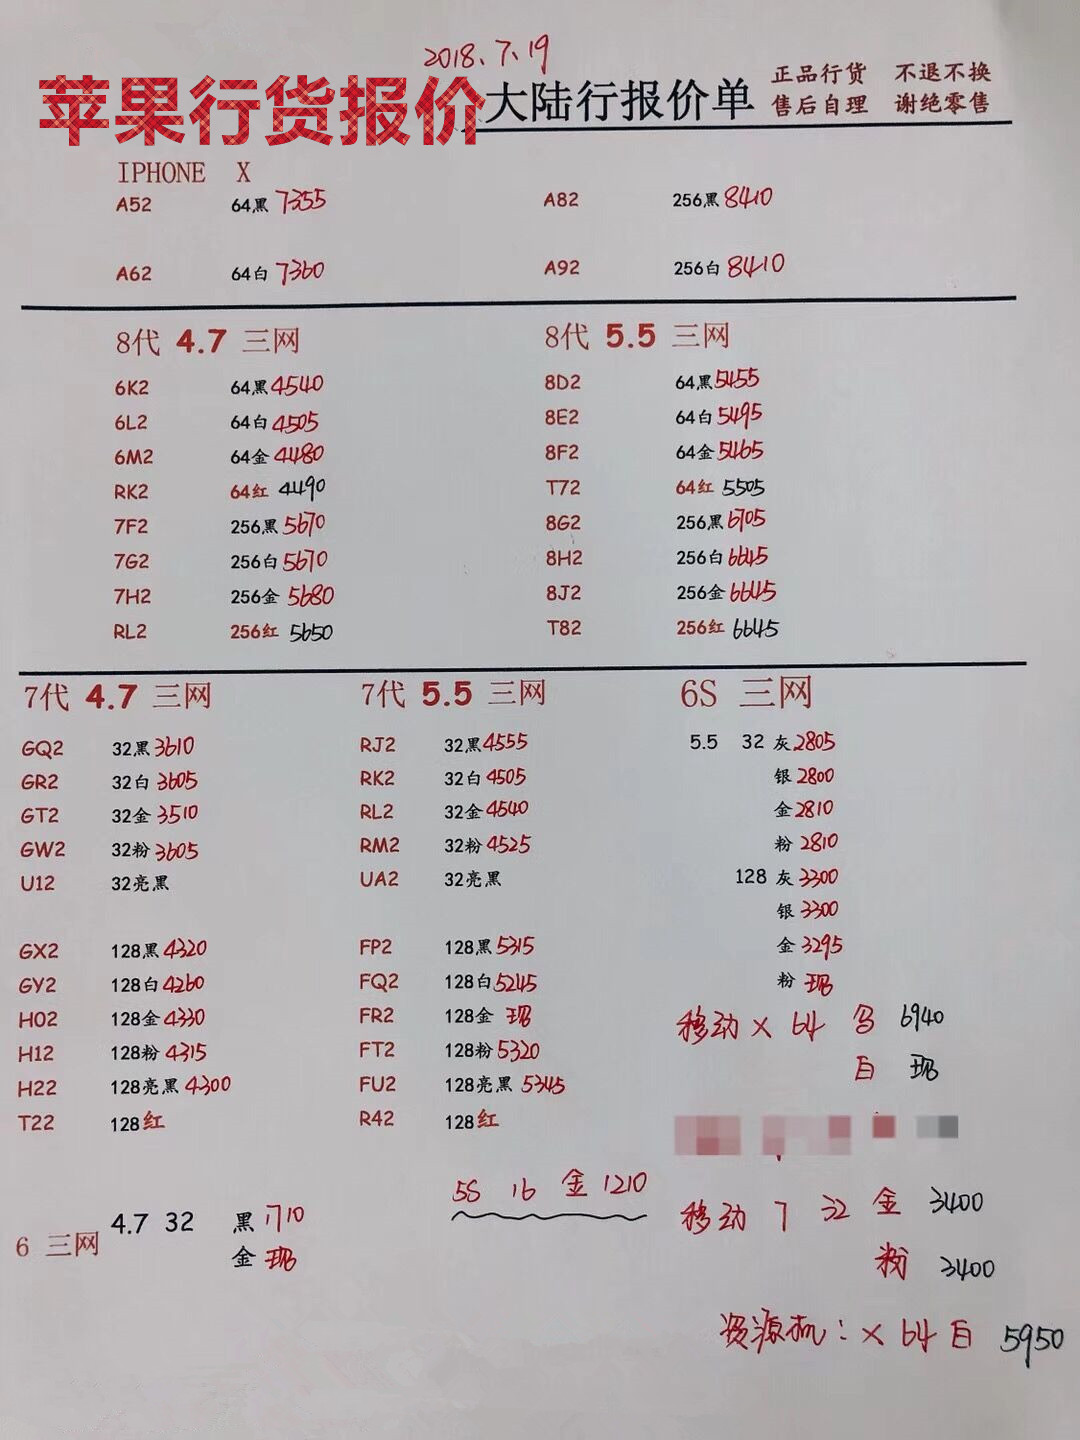 2018.7.19
苹果行货报价
大陆行报价单
正品行货 不退不换
售后自理 谢绝零售
IPHONE X
A52 64黑 7355 A82 256黑 8410
A62 64白 7360 A92 256白 8410
8代 4.7 三网 8代 5.5 三网
6K2 64黑 4540 8D2 64黑 5455
6L2 64白 4505 8E2 64白 5495
6M2 64金 4480 8F2 64金 5465
RK2 64红 4490 T72 64红 5505
7F2 256黑 5670 8G2 256黑 6705
7G2 256白 5670 8H2 256白 6645
7H2 256金 5680 8J2 256金 6645
RL2 256红 5650 T82 256红 6645
7代 4.7 三网 7代 5.5 三网 6S 三网
GQ2 32黑 3610 RJ2 32黑 4555 5.5 32 灰 2805
GR2 32白 3605 RK2 32白 4505 银 2800
GT2 32金 3510 RL2 32金 4540 金 2810
GW2 32粉 3605 RM2 32粉 4525 粉 2810
U12 32亮黑 UA2 32亮黑 128 灰 3300
银 3300
GX2 128黑 4320 FP2 128黑 5315 金 3295
GY2 128白 4260 FQ2 128白 5245 粉 现
H02 128金 4330 FR2 128金 现 移动 X 64 6940
H12 128粉 4315 FT2 128粉 5320 白 现
H22 128亮黑 4300 FU2 128亮黑 5345
T22 128红 R42 128红
5S 16 金 1210
6 三网 4.7 32 黑 1710 移动 7 32 金 3400
金 现 粉 3400
资源机: X 64 白 5950